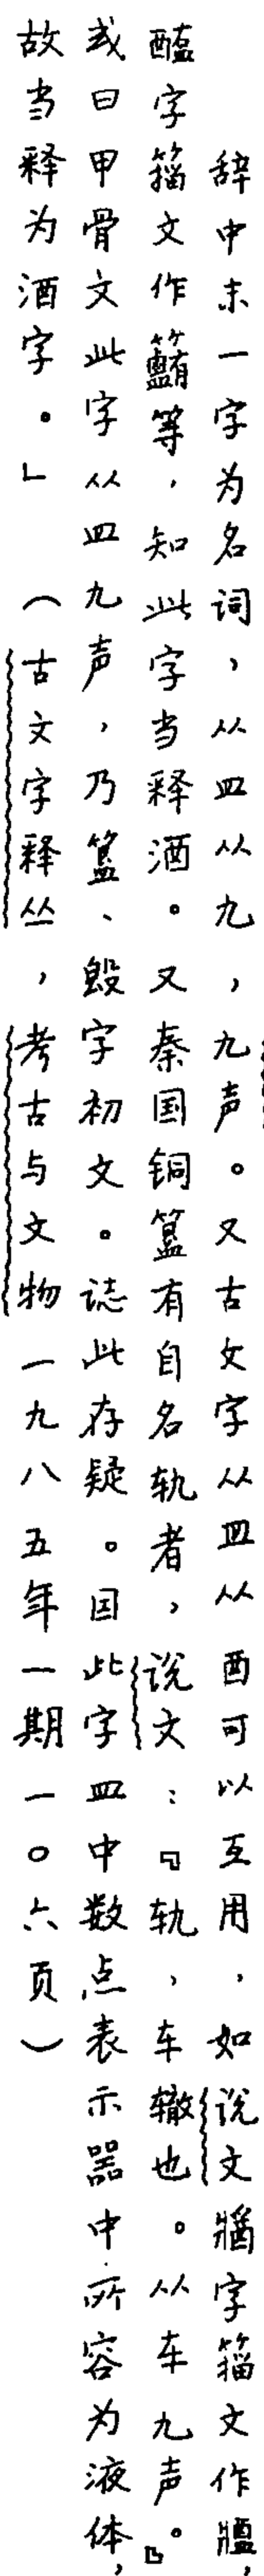 辞中末一字为名词，从皿从九，九声。又古文字从皿从酉可以互用，如说文牆字籀文作𤖕，
醢字籀文作䤈等，知此字当释酒。又秦国铜簋有自名轨者，说文：『轨，车辙也。从车九声。』
或曰甲骨文此字从皿九声，乃簋、毁字初文。誌此存疑。因此字皿中数点表示器中所容为液体，
故当释为酒字。」（古文字释丛，考古与文物一九八五年一期一〇六页）